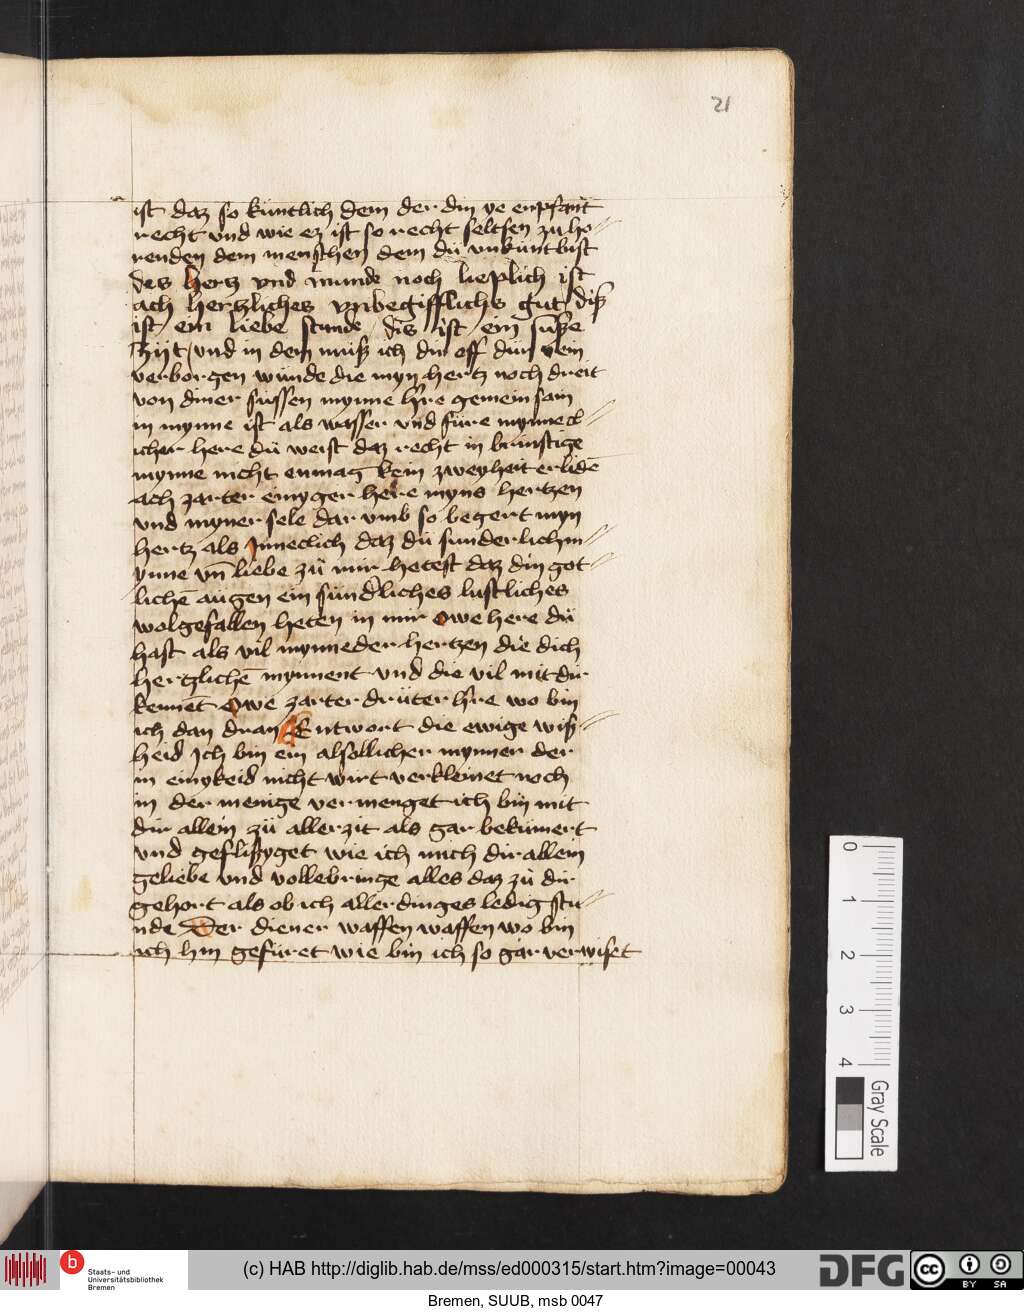 21
ist daz so kuntlich dem der din ye enpfant
recht vnd wie ez ist so recht seltsen zu ho
renden dem menschen dem du vnkuntbist
des hertz vnd munde noch lieplich ist
ach hertzliches vnbegifflichs gut diß
ist ein liebe stunde / dis ist ein suße
zijt / vnd in dem muß ich dir eff dun ein
verborgen wunde die myn hertz noch dreit
von diner sussen mynne hre gemeinsam
in mynne ist als wasser vnd fure mynnecl
icher here du weist daz recht in brunstige
mynne nicht enmag kein zweyheit erlide
ach zarter einyger here myns hertzen
vnd myner sele dar vmb so begert myn
hertz als Inneclich daz du sunderlich m
ynne vn liebe zu mir hetest daz din got
liche augen ein sunderliches lustliches
wolgefallen heten in mir owe here du
hast als vil mynneder hertzen die dich
hertzliche mynnent vnd die vil mit dir
kennet Owe zarter druter hre wo bin
ich dan dran Entwort die ewige wiß
heid Ich bin ein alsollicher mynner der
in einykeid nicht wirt verkleinet noch
in der menige vermenget ich bin mit
dir allein zu allerzit als gar bekumert
vnd geflißyget wie ich mich dir allein
geliebe vnd vollebringe alles daz zu dir
gehort als ob ich allerdinges ledig stu
nde Der diener waffen waffen wo bin
ich hin gefuret wie bin ich so gar verwiset
0
1
2
3
4
Gray Scale
b
Staats- und
Universitätsbibliothek
Bremen
(c) HAB http://diglib.hab.de/mss/ed000315/start.htm?image=00043
DFG
cc
BY SA
Bremen, SUUB, msb 0047